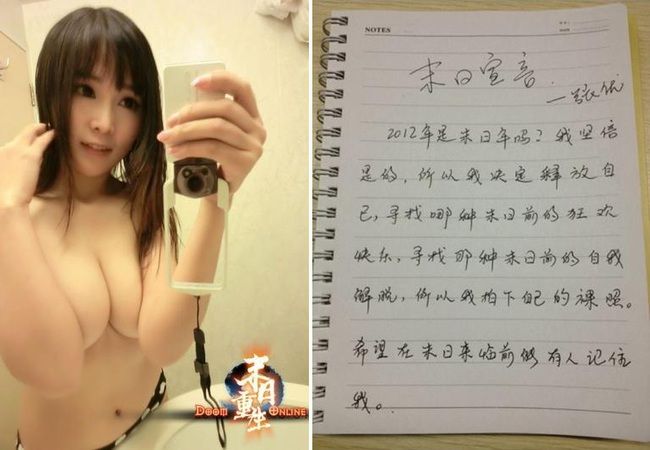 末日重生
DOOM ONLINE
NOTES
末日宣言
一张优
2012年是末日年吗?我坚信
是的,所以我决定释放自
己,寻找哪种末日前的狂欢
快乐,寻找那种末日前的自我
解脱,所以我拍下自己的裸照。
希望在末日来临前能有人记住
我。